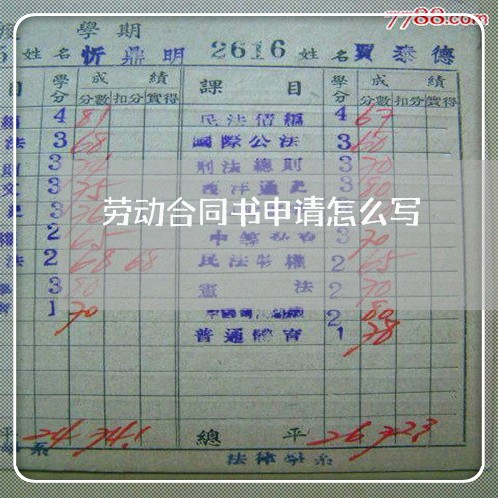 7788.com
學期
姓名 忻鼎明 2616 姓名 賈泰德
目 學分 成績 課目 學分 成績
分數 扣分 實得 分數 扣分 實得
4 81 民法債編 4 67
法 3 68 國際公法 3 60
3 刑法總則 3 70
3 75 西洋通史 3 80
劳动合同书申请怎么写
2 65 3 70
法 2 68 68 民法物權 2 65
3 80 憲法 2 70
1 70 2 80
普通體育 1 78
平 24 74.1 總平 26 72.3
系 法律學系